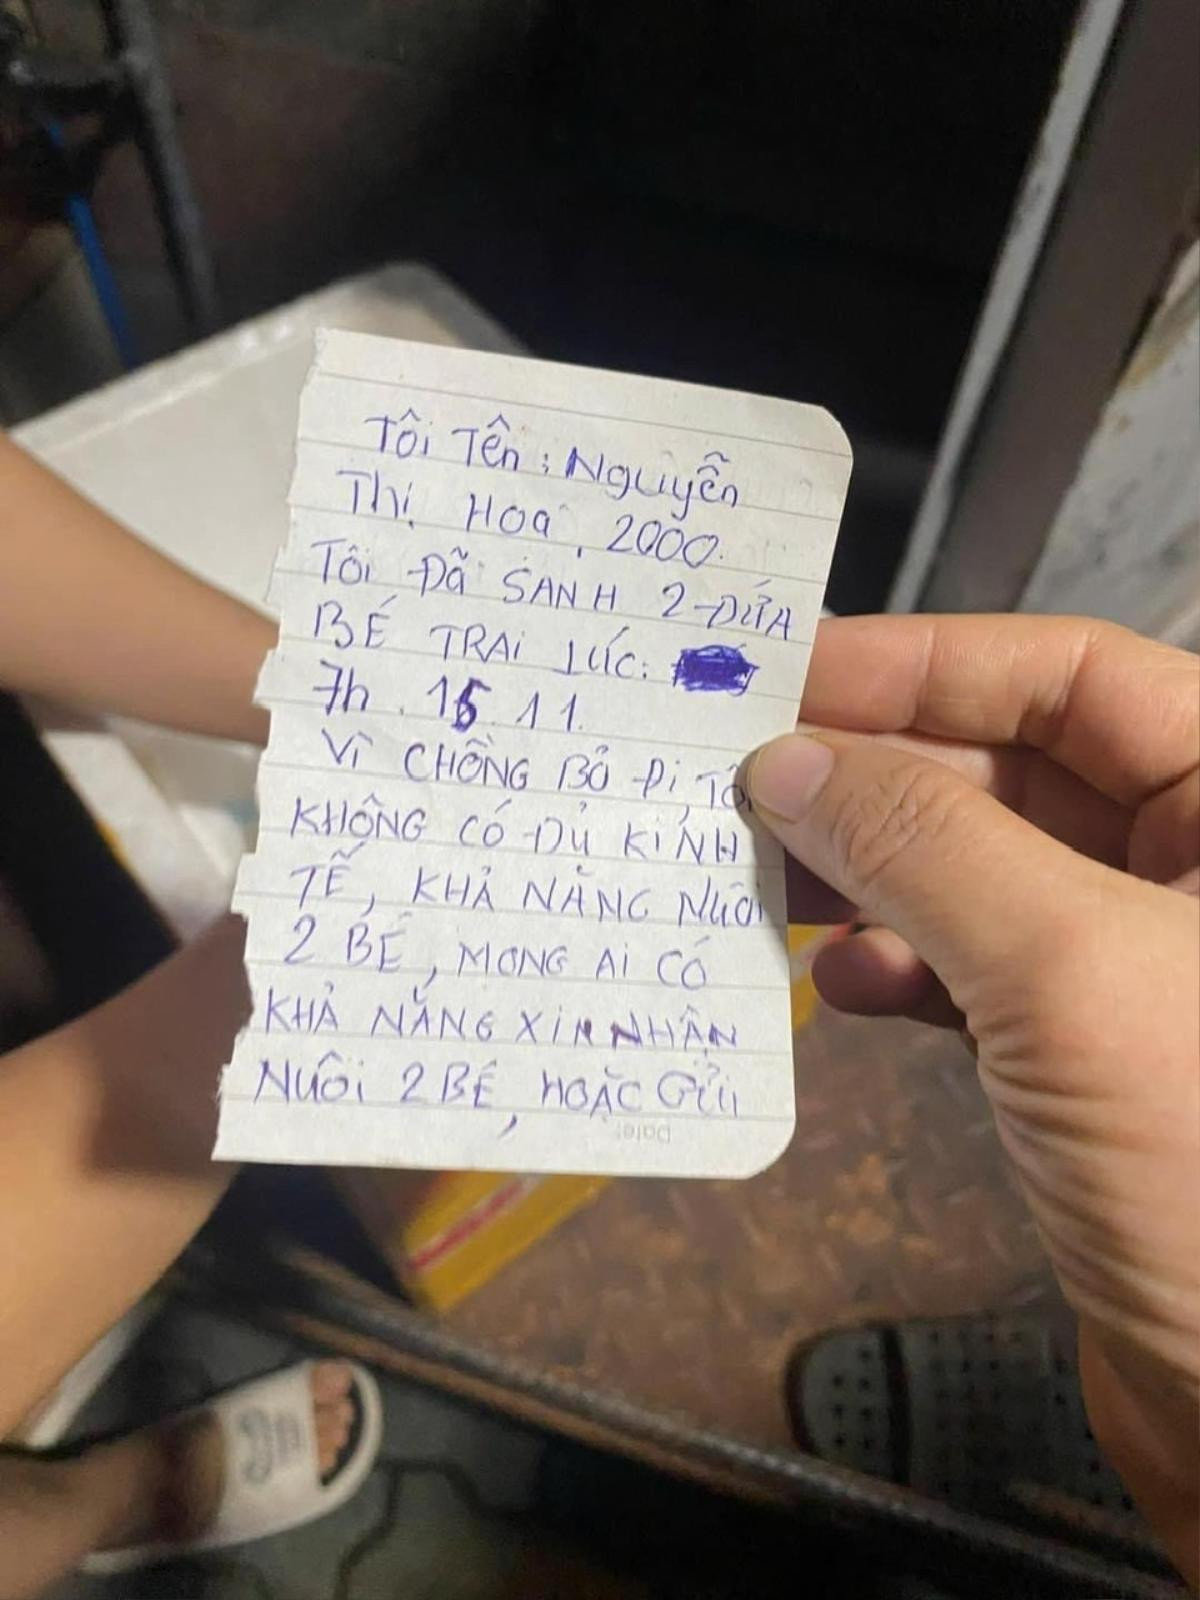 Tôi Tên : Nguyễn
Thị Hoa, 2000.
Tôi Đã SANH 2 ĐỨA
BÉ TRAi LÚC:
7h . 15 . 11.
Vì CHỒNG BỎ Đi, Tôi
KHÔNG CÓ ĐỦ KiNH
TẾ, KHẢ NĂNG Nuôi
2 BÉ, MONG Ai CÓ
KHẢ NĂNG XiN NHẬN
Nuôi 2 BÉ, HOẶC Gửi
Date: